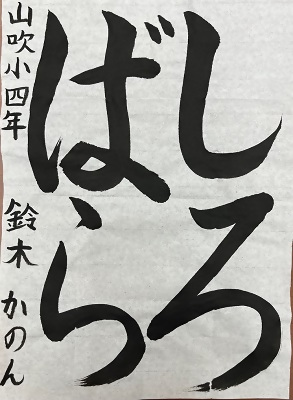 しろ
ばら
山吹小四年 鈴木かのん